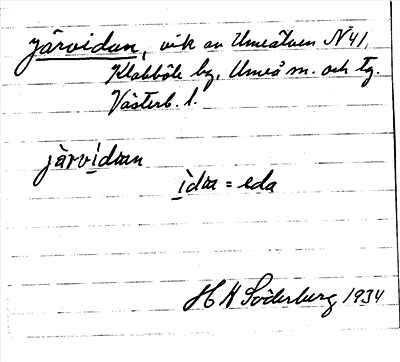 Järvidan, vik av Umeälven N 41,
Klabböle by, Umeå sn. och tg.
Västerb. l.
järvidan
ida = eda
H Söderberg 1934